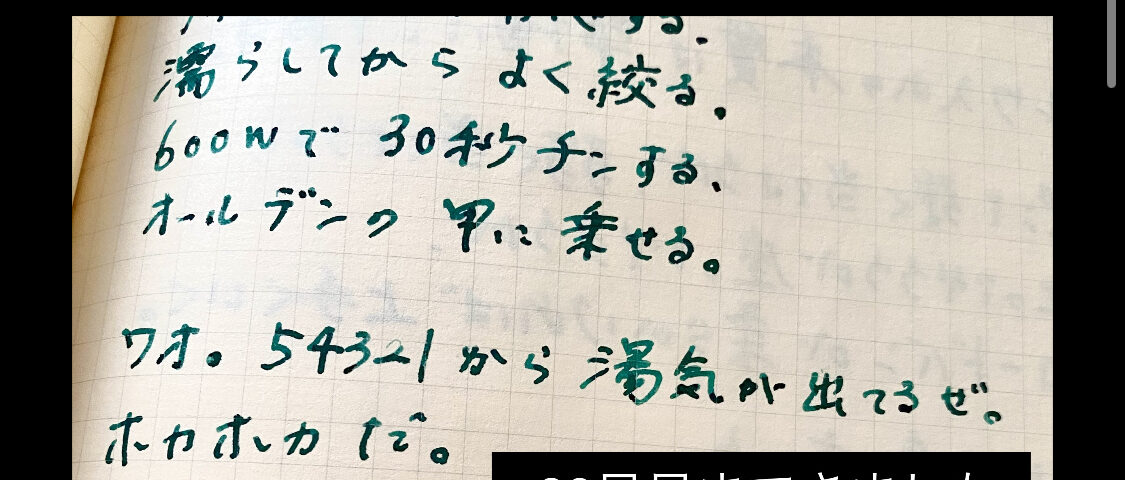 する.
濡らしてからよく絞る。
600Wで 30秒チンする、
オールデンの 甲に乗せる。
ワオ。54321から湯気が出てるぜ。
ホカホカだ。